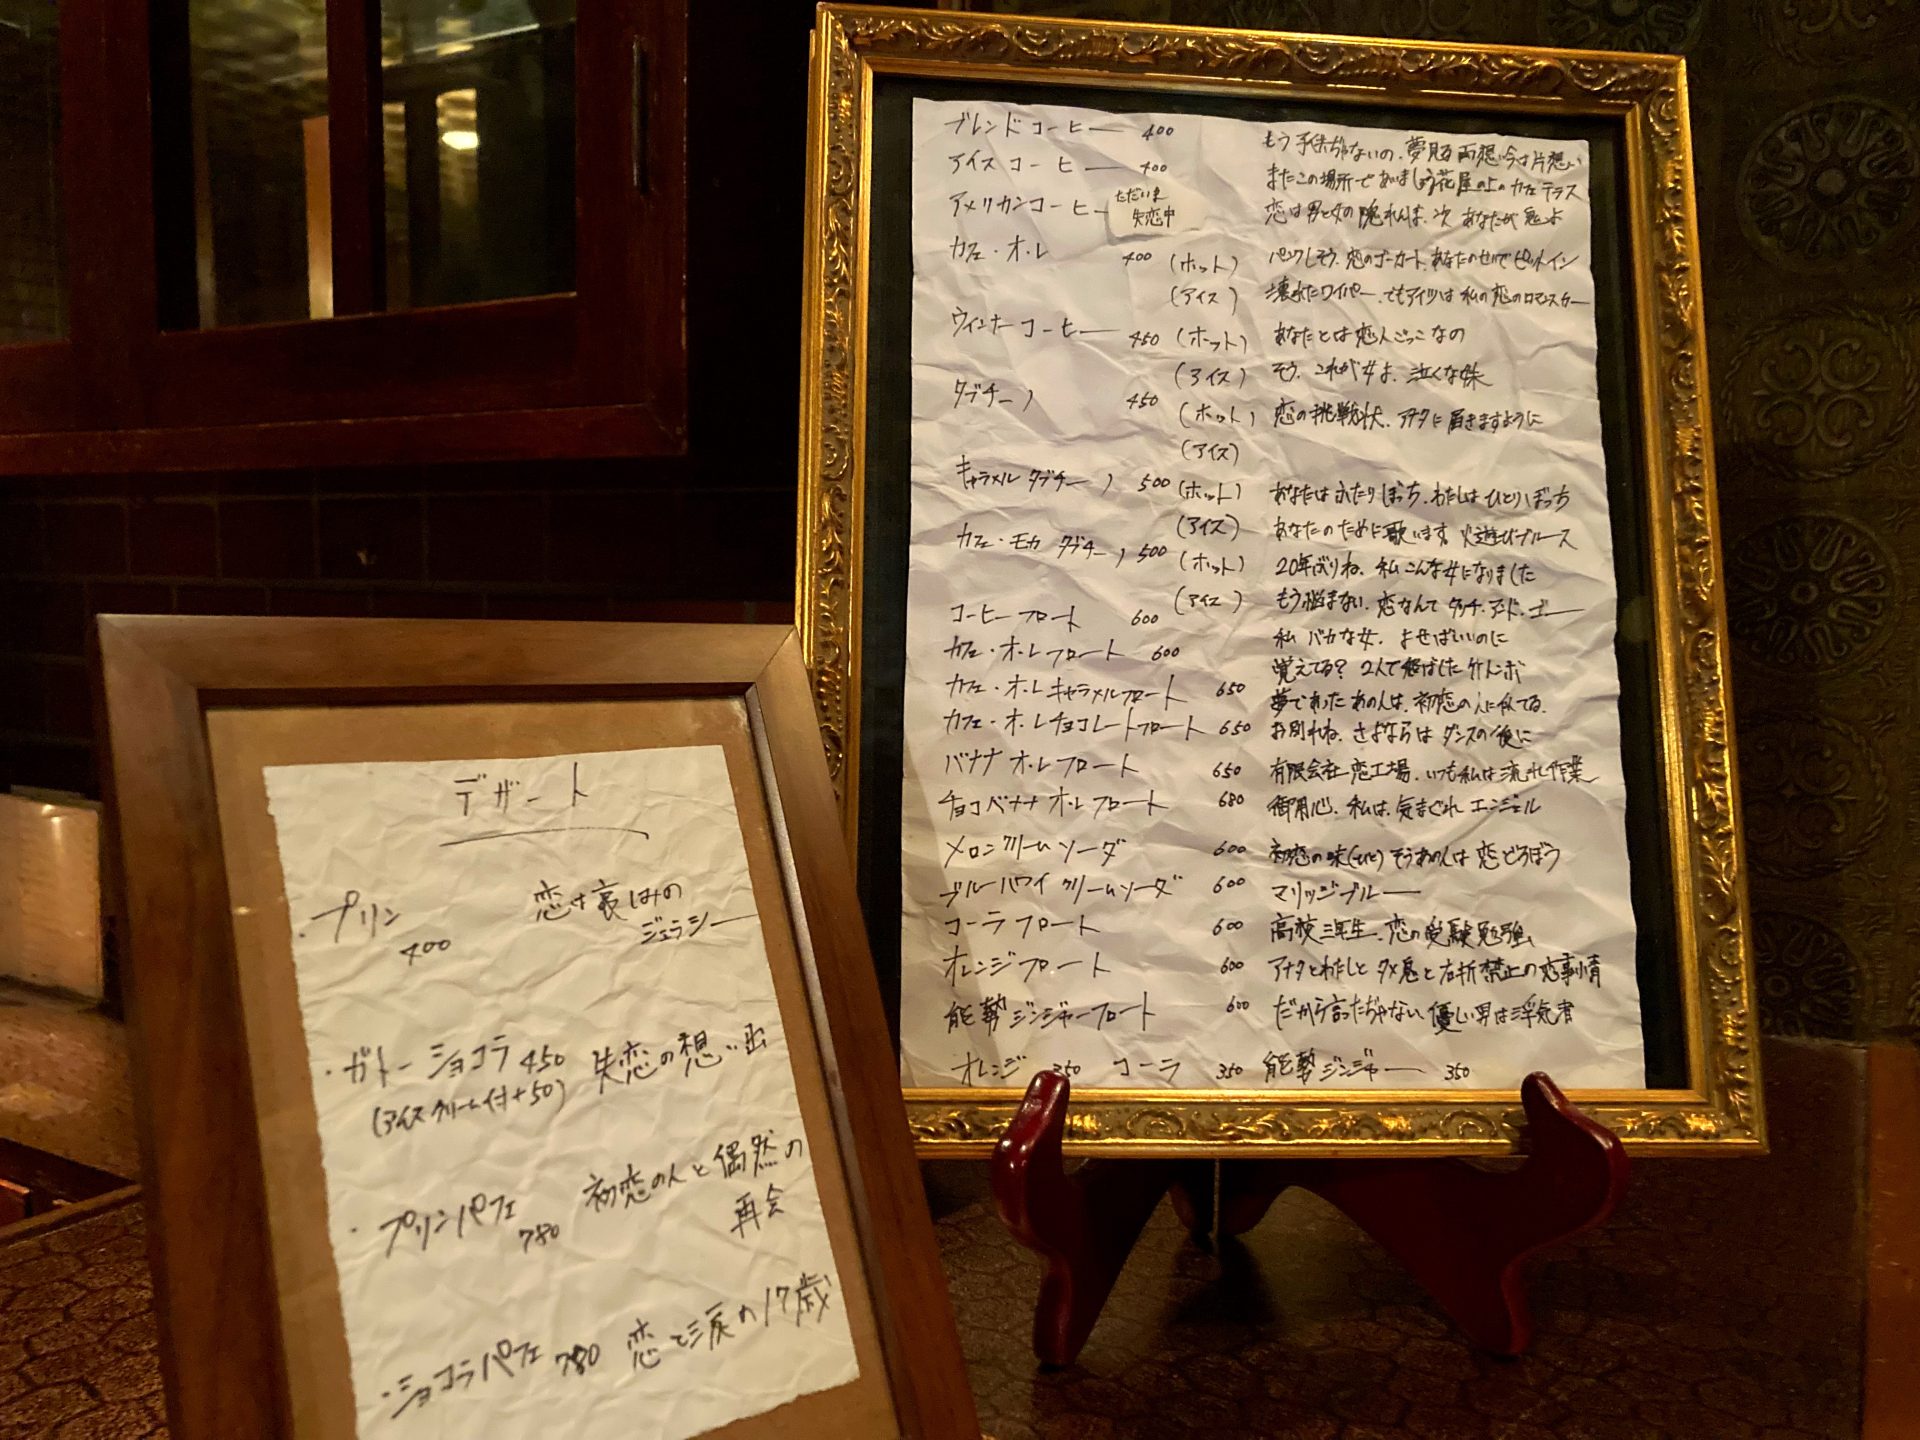 デザート
・プリン
400
恋は哀しみの
ジェラシー
・ガトーショコラ 450 失恋の想い出
(アイスクリーム付+50)
・プリンパフェ 780 初恋の人と偶然の
再会
・ショコラパフェ 780 恋と涙の17歳
ブレンドコーヒー 400 もう子供ぢゃないの、夢見る両想い今は片想い
アイスコーヒー 400 またこの場所であいましょう花屋の上のカフェテラス
アメリカンコーヒー ただいま 恋は男と女の隠れんぼ、次あなたが鬼よ
失恋中
カフェ・オ・レ 400 (ホット) パンクしそう、恋のゴーカート、あなたのせいでピットイン
(アイス) 壊れたワイパー、でもアイツは私の恋のロマンスカー
ウィンナーコーヒー 450 (ホット) あなたとは恋人ごっこなの
(アイス) そう、これが女よ、泣くな妹
ダブチーノ 450 (ホット) 恋の挑戦状、アナタに届きますように
(アイス)
キャラメルダブチーノ 500 (ホット) あなたはふたりぼっち、わたしはひとりぼっち
(アイス) あなたのために歌います。火遊びブルース
カフェ・モカダブチーノ 500 (ホット) 20年ぶりね、私こんな女になりました
(アイス) もう悩まない、恋なんてタッチ・アンド・ゴー
コーヒーフロート 600 私バカな女、よせばいいのに
カフェ・オ・レフロート 600 覚えてる? 2人で飛ばした竹トンボ
カフェ・オ・レキャラメルフロート 650 夢であったあの人は、初恋の人に似てる。
カフェ・オ・レチョコレートフロート 650 お別れね、さよならはダンスの後に
バナナオ・レフロート 650 有限会社恋工場、いつも私は流れ作業
チョコバナナオ・レフロート 680 御用心、私は、気まぐれエンジェル
メロンクリームソーダ 600 初恋の味(ひと)そうあの人は恋どろぼう
ブルーハワイクリームソーダ 600 マリッジブルー
コーラフロート 600 高校三年生、恋の受験勉強
オレンジフロート 600 アナタとわたしとタメ息と右折禁止の恋事情
能勢ジンジャーフロート 600 だから言ったぢゃない優しい男は浮気者
オレンジ 350 コーラ 350 能勢ジンジャー 350